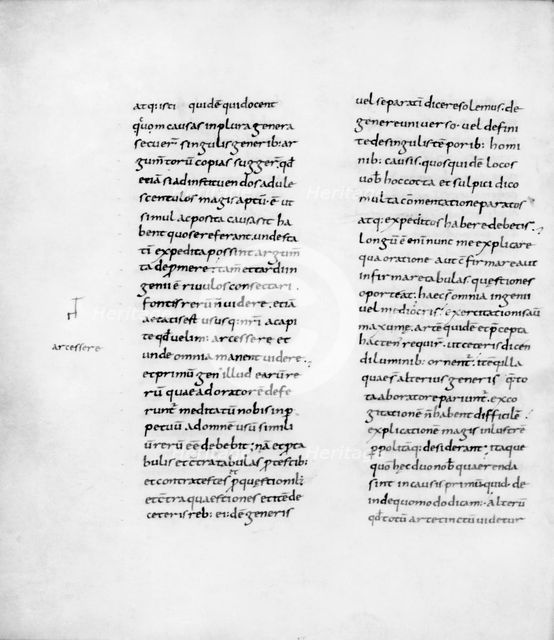 atq; isti quidē qui docent
qūom causas in plura genera
secuer̄ singulis generib: ar
gum̄torū copias sugger̄ qđ
etiā si ad instituendos adule
scentulos magis aptū ē ut
simul ac posita causa sit ha
bent quo se referant unde sta
tī expedita possint argum̄
ta dep̄mere tam̄ et tardi in
genii ē rivulos consectari
fontis rerū n̄ videre et iā
aetatis est ususq: nr̄i a capi
te qđ velim: arcessere et
unde omnia manent videre
et primū gen illud earū re
rū quae ad oratorē defe
runt̄ meditatū nobis in p̄
petuū ad omnē usū simili
ū rerū eē debebit nā et p̄ta
bulis et cētra tabulas p̄ testib:
et contra testes et p̄ questionib:
et cētra quaestiones et itē de
ceteris reb: ei: dē generis
arcessere
vel separatī dicere solemus: de
genere universo vel defini
te de singulis tēporib: homi
nib: causis quos quidē locos
vob̄ hoc cotta et sulpici dico
multa cōmentatione paratos
atq; expeditos habere debetis
Longū ē enī nunc me explicare
qua oratione aut cēfirmare aut
infirmare tabulas questiones
oporteat: haec s̄ omnia ingenii
vel mediocris: exercitationis aū
maxumę artē quidē et p̄cepta
hactēn requir̄: ut certis dicen
di luminib: ornent̄ itēq̄ illa
quae s̄ alterius generis q̄ to
ta ab oratore pariunt̄ exco
gitationē n̄ habent difficilē
explicationē magis inlustrē
p̄politāq; desiderant itaque
quo hęc duo nob̄ quaerenda
sint in causis primū quid de
inde quomodo dicam: Alterū
qđ totū arte tinctū videtur
Heritage